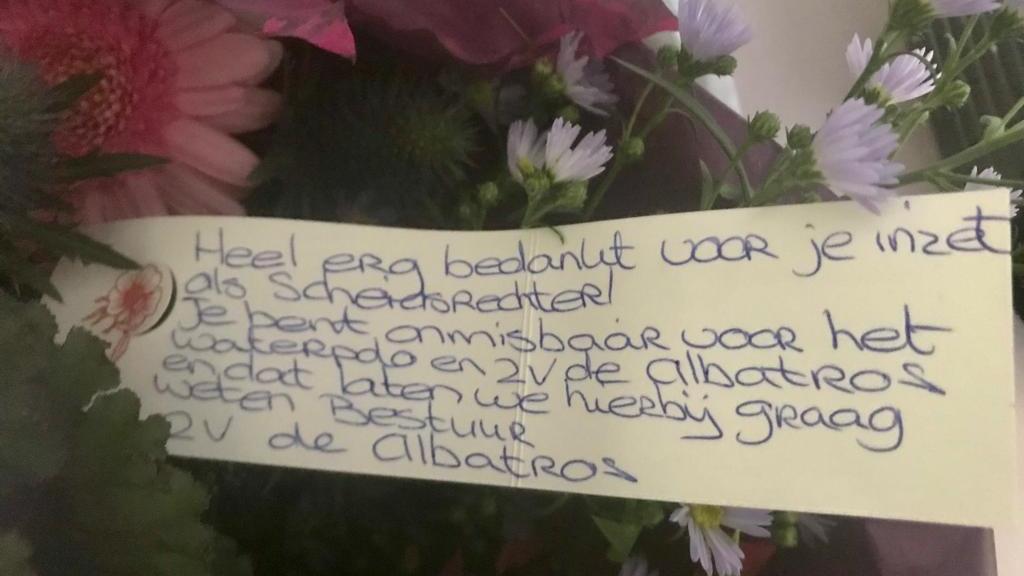 Heel erg bedankt voor je inzet
als Scheidsrechter!
Je bent onmisbaar voor het
waterpolo en ZV de Albatros
en dat laten we hierbij graag
weten Bestuur
ZV de Albatros